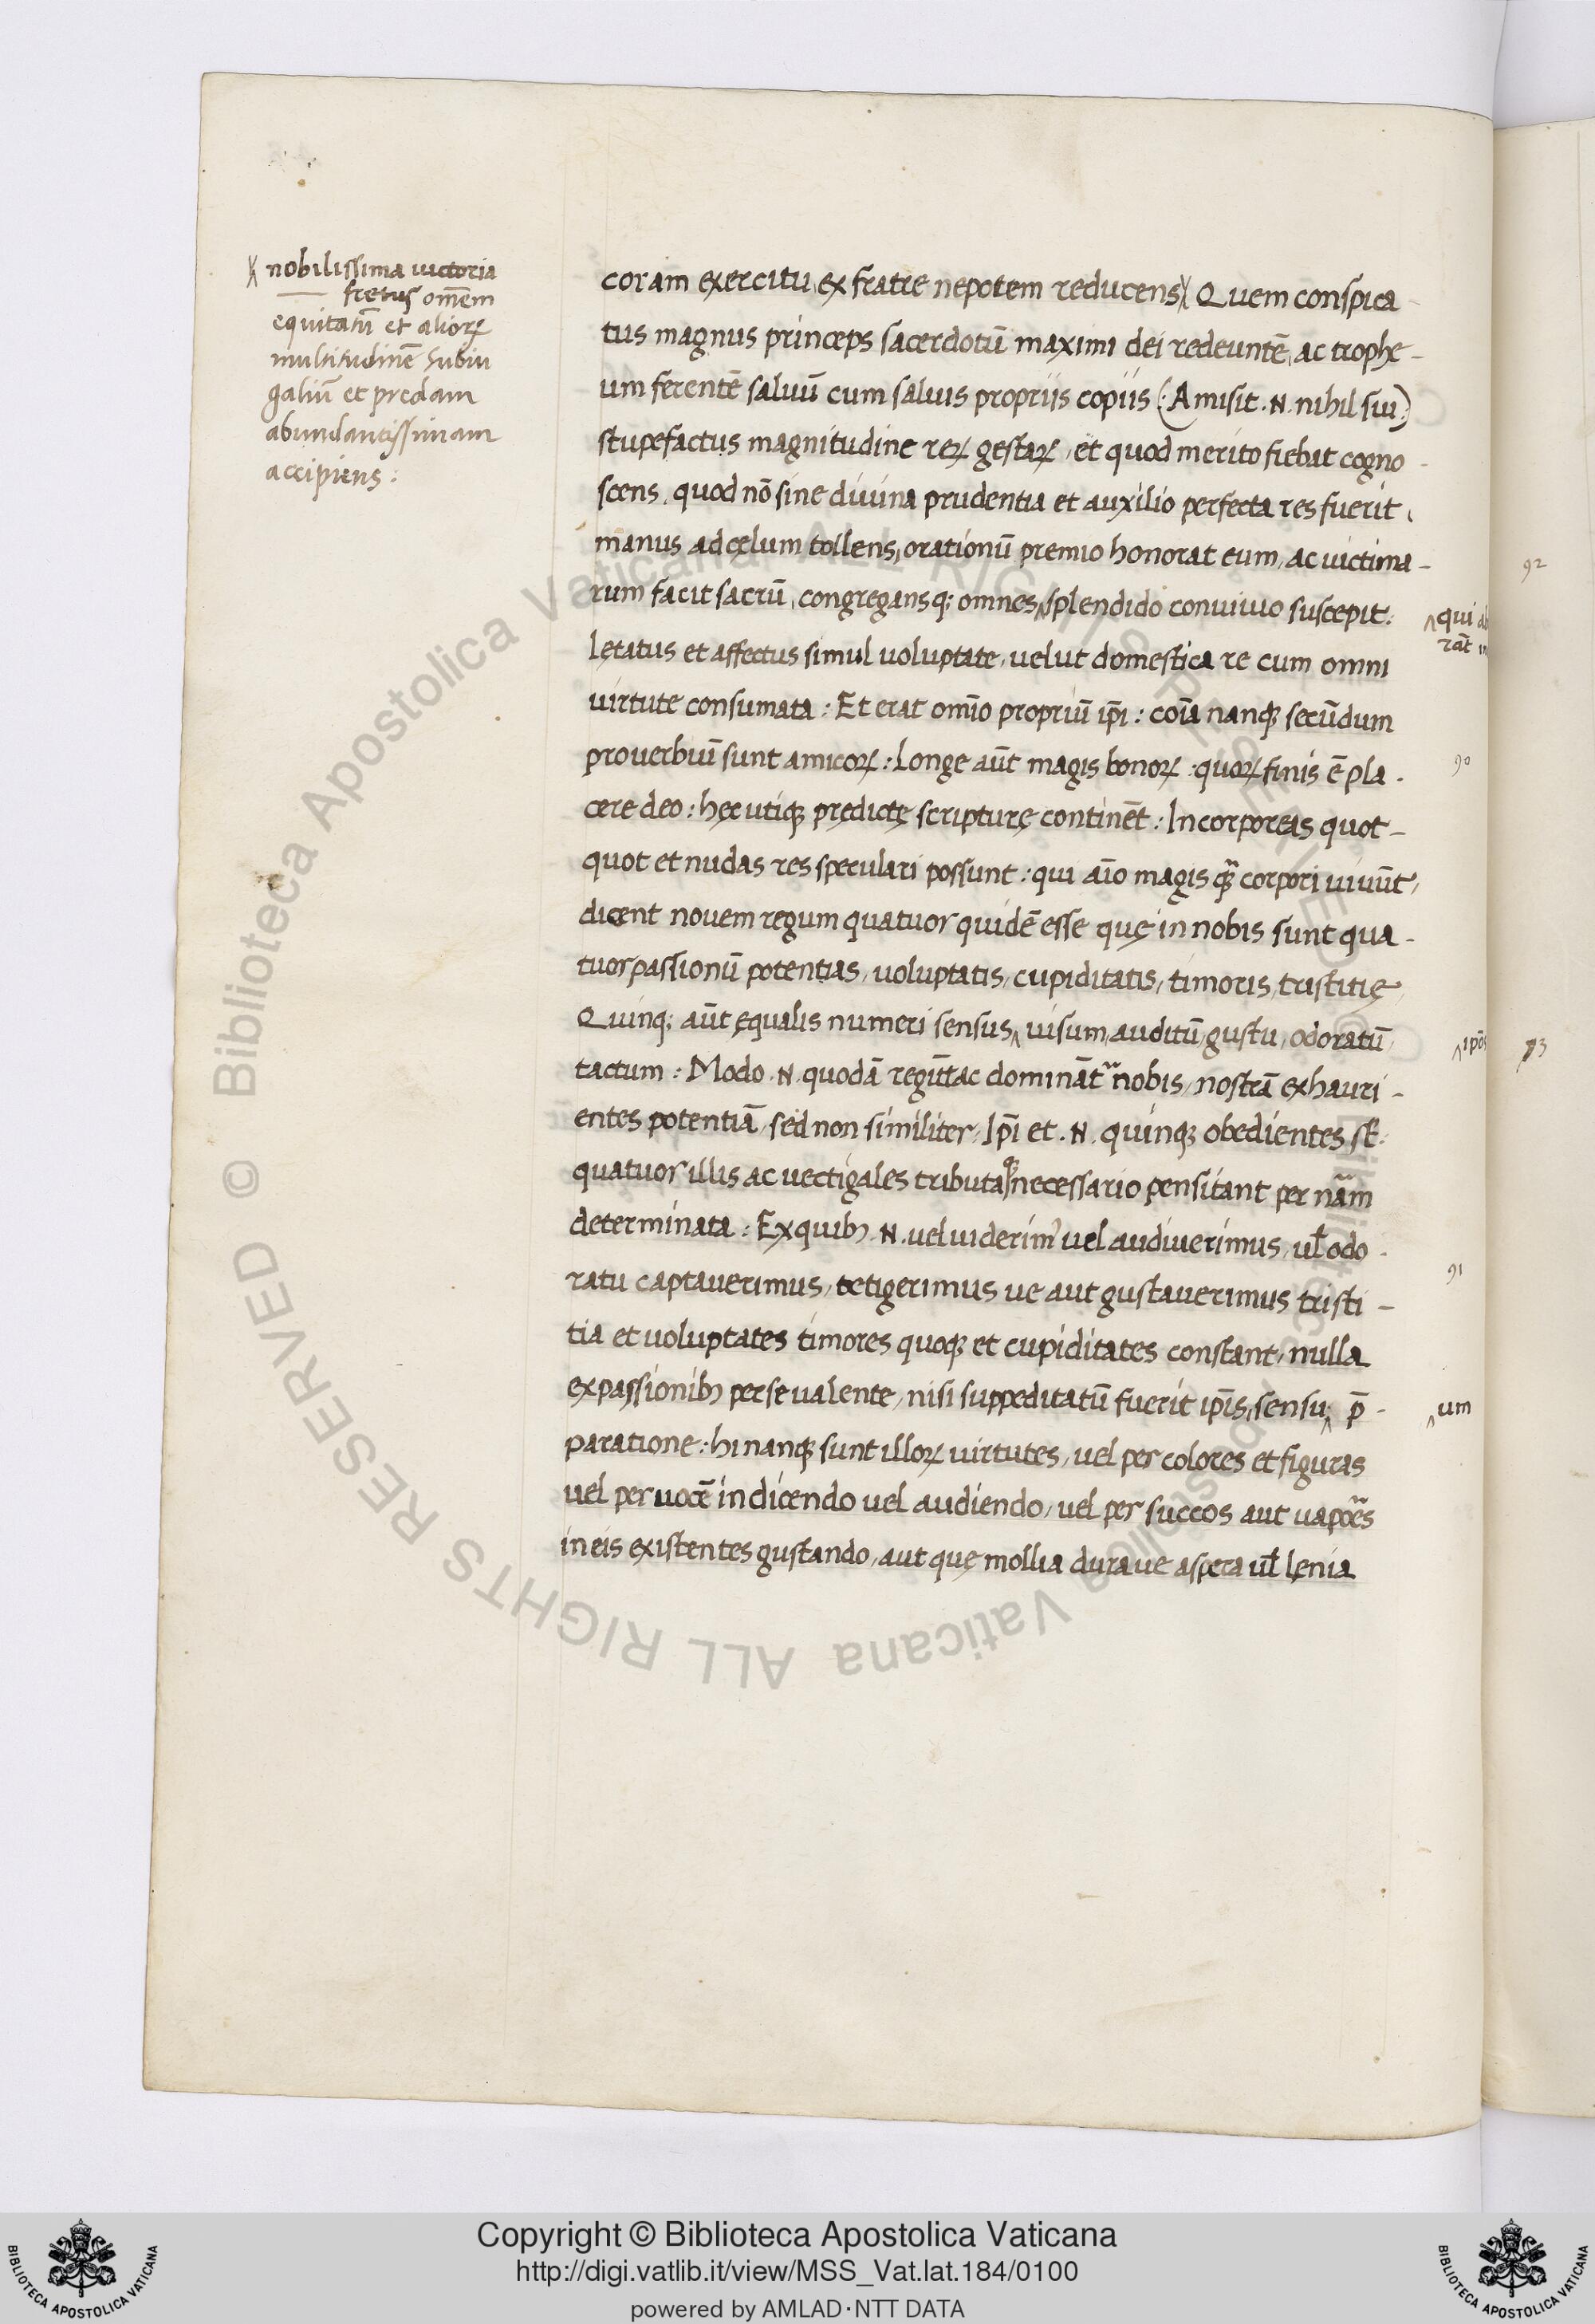 nobilissima uictoria
fretus om̄em
equitatū et alioꝝ
multitudinē subiu
galiū et predam
abundantissimam
accipiens:
coram exercitu, ex fratre nepotem reducens Quem conspica
tus magnus princeps sacerdotū maximi dei redeuntē, ac trophe-
um ferentē saluū cum saluis propriis copiis (: Amisit .N. nihil sui:)
stupefactus magnitudine reꝝ gestaꝝ, et quod merito fiebat cogno-
scens, quod nō sine diuina prudentia et auxilio perfecta res fuerit,
manus ad cęlum tollens, orationū premio honorat eum, ac uictima-
rum facit sacrū, congregans q; omnes ʌ splendido conuiuio suscepit:
ʌ qui
rāt
Lętatus et affectus simul uoluptate, uelut domestica re cum omni
uirtute consumata: Et erat om̄io propriū ip̄i: cōia nanqꝫ secūdum
prouerbiū sunt amicoꝝ: Longe aūt magis bonoꝝ: quoꝝ finis ē pla-
cere deo: hęc utiqꝫ prędictę scripturę continēt: Incorporeas quot-
quot et nudas res speculari possunt: qui aīo magis qꝫ̃ corpori uiuūt,
dicent nouem regum quatuor quidē esse quę in nobis sunt qua-
tuor passionū potentias, uoluptatis, cupiditatis, timoris, tristitię
Quinq; aūt ęqualis numeri sensus, ʌ uisum, auditū, gustu, odoratū,
ʌ ipōs
tactum: Modo .N. quodā regūt ac domināt᷑ nobis, nostrā exhauri-
entes potentiā, sed non similiter, Ip̄i et .N. quinqꝫ obedientes st̄:
quatuor illis ac uectigales tributaqꝫ necessario pensitant per nãm
determinata: Ex quibꝫ .N. uel uiderimꝰ uel audiuerimus, ul̄ odo-
ratu captauerimus, tetigerimus ue aut gustauerimus tristi-
tia et uoluptates timores quoqꝫ et cupiditates constant, nulla
ex passionibꝫ per se ualente, nisi suppeditatū fuerit ip̄is, sensu ʌ p̄-
ʌ um
paratione: hi nanqꝫ sunt illoꝝ uirtutes, uel per colores et figuras
uel per uocē in dicendo uel audiendo, uel per succos aut uapões
in eis existentes gustando, aut quę mollia duraue aspera ul̄ lęnia
92
90
73
91
© Biblioteca Apostolica Vaticana ALL RIGHTS RESERVED
Copyright © Biblioteca Apostolica Vaticana
http://digi.vatlib.it/view/MSS_Vat.lat.184/0100
powered by AMLAD·NTT DATA
BIBLIOTECA APOSTOLICA VATICANA
BIBLIOTECA APOSTOLICA VATICANA